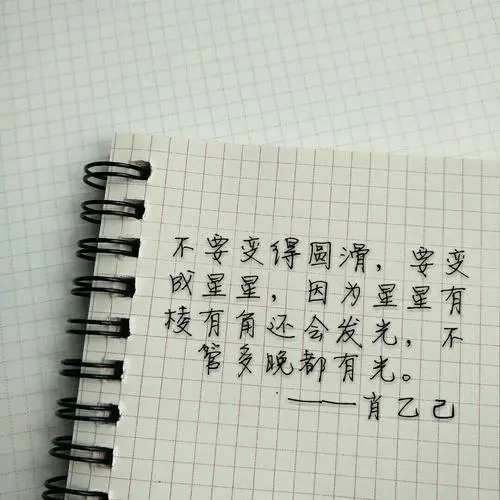 不要变得圆滑，要变
成星星，因为星星有
棱有角还会发光，不
管多晚都有光。
——肖乙己